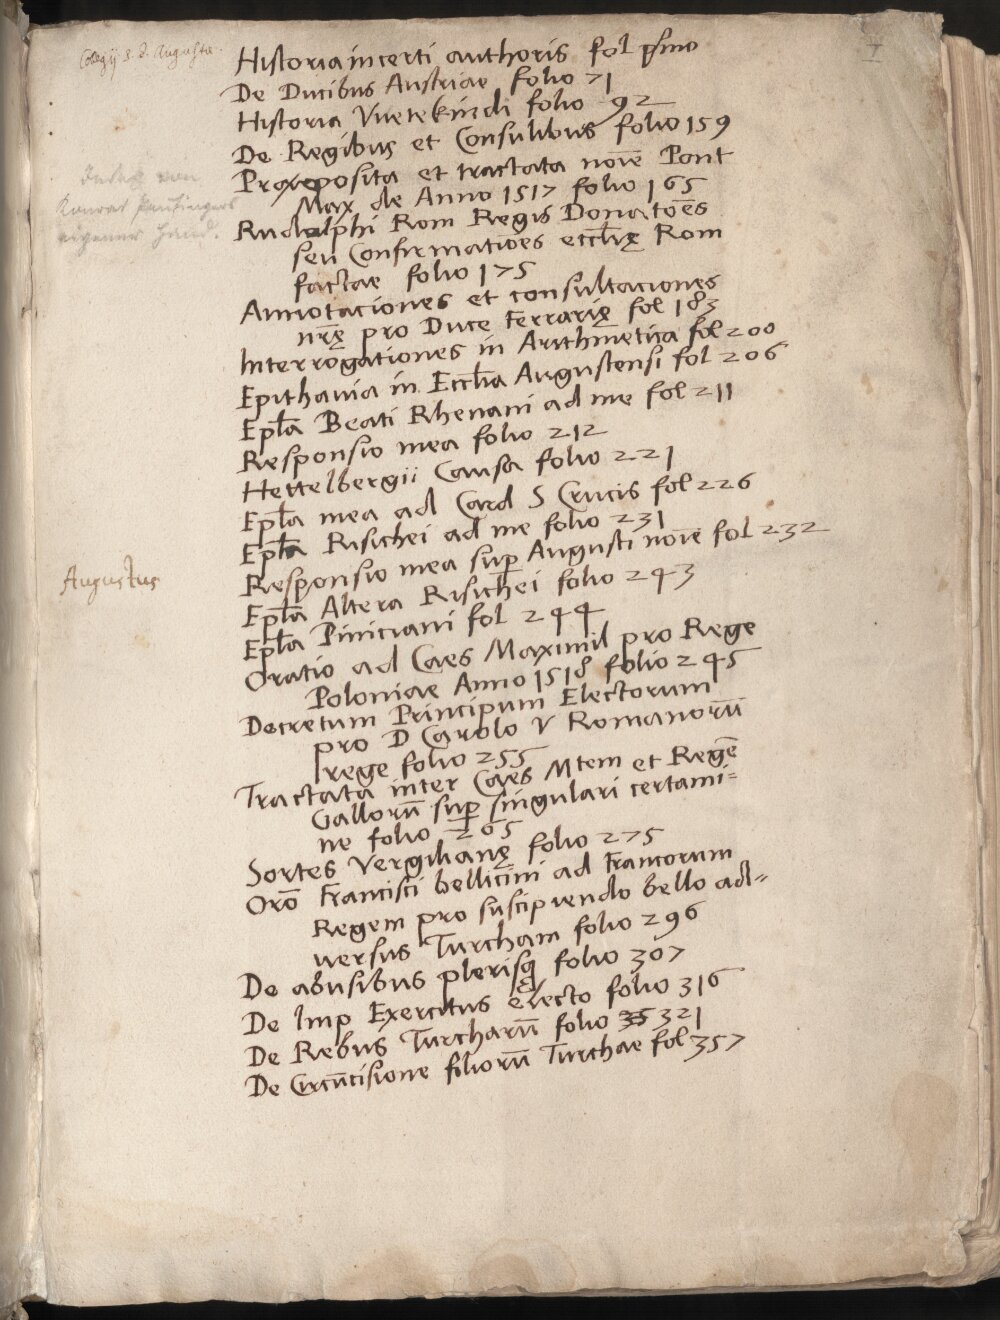 Collegij S. J. Augustae.
I
Historia incerti authoris fol psmo
De Ducibus Austriae folio 71
Historia Vuetekindi folio 92
De Regibus et Consulibus folio 159
Proposita et tractata noīe Pont
Max de Anno 1517 folio 165
Rudolphi Rom Regis Donatōes
seu Confirmatiōes eccl̄ię Rom
factae folio 175
Annotaciones et consultaciones
nr̄ę pro Duce Ferrarię fol 183
Interrogationes in Arithmetica fol 200
Epithavia in Eccl̄ia Augustensi fol 206
Epl̄a Beati Rhenani ad me fol 211
Responsio mea folio 212
Hettelbergii Causa folio 221
Epl̄a mea ad Card S Crucis fol 226
Epl̄a Risichei ad me folio 231
Responsio mea sup Augusti noīe fol 232
Epl̄a Altera Risichei folio 243
Epl̄a Piniciani fol 244
Oratio ad Caes Maximil pro Rege
Poloniae Anno 1518 folio 245
Decretum Principum Electorum
pro D Carolo V Romanorū
rege folio 255
Tractata inter Caes Mtem et Regē
Gallorū sup singulari certami=
ne folio 265
Sortes Vergilianę folio 275
Orō Francisci bellicini ad Francorum
Regem pro suscipiendo bello ad=
uersus Turcham folio 296
De abusibus plerisq folio 307
De Imp Exercitus electo folio 316
De Rebus Turcharū folio 35 321
De Circūcisione filiorū Turchae fol 357
von
Konrad Peutingers
eigener Hand.
Augustus